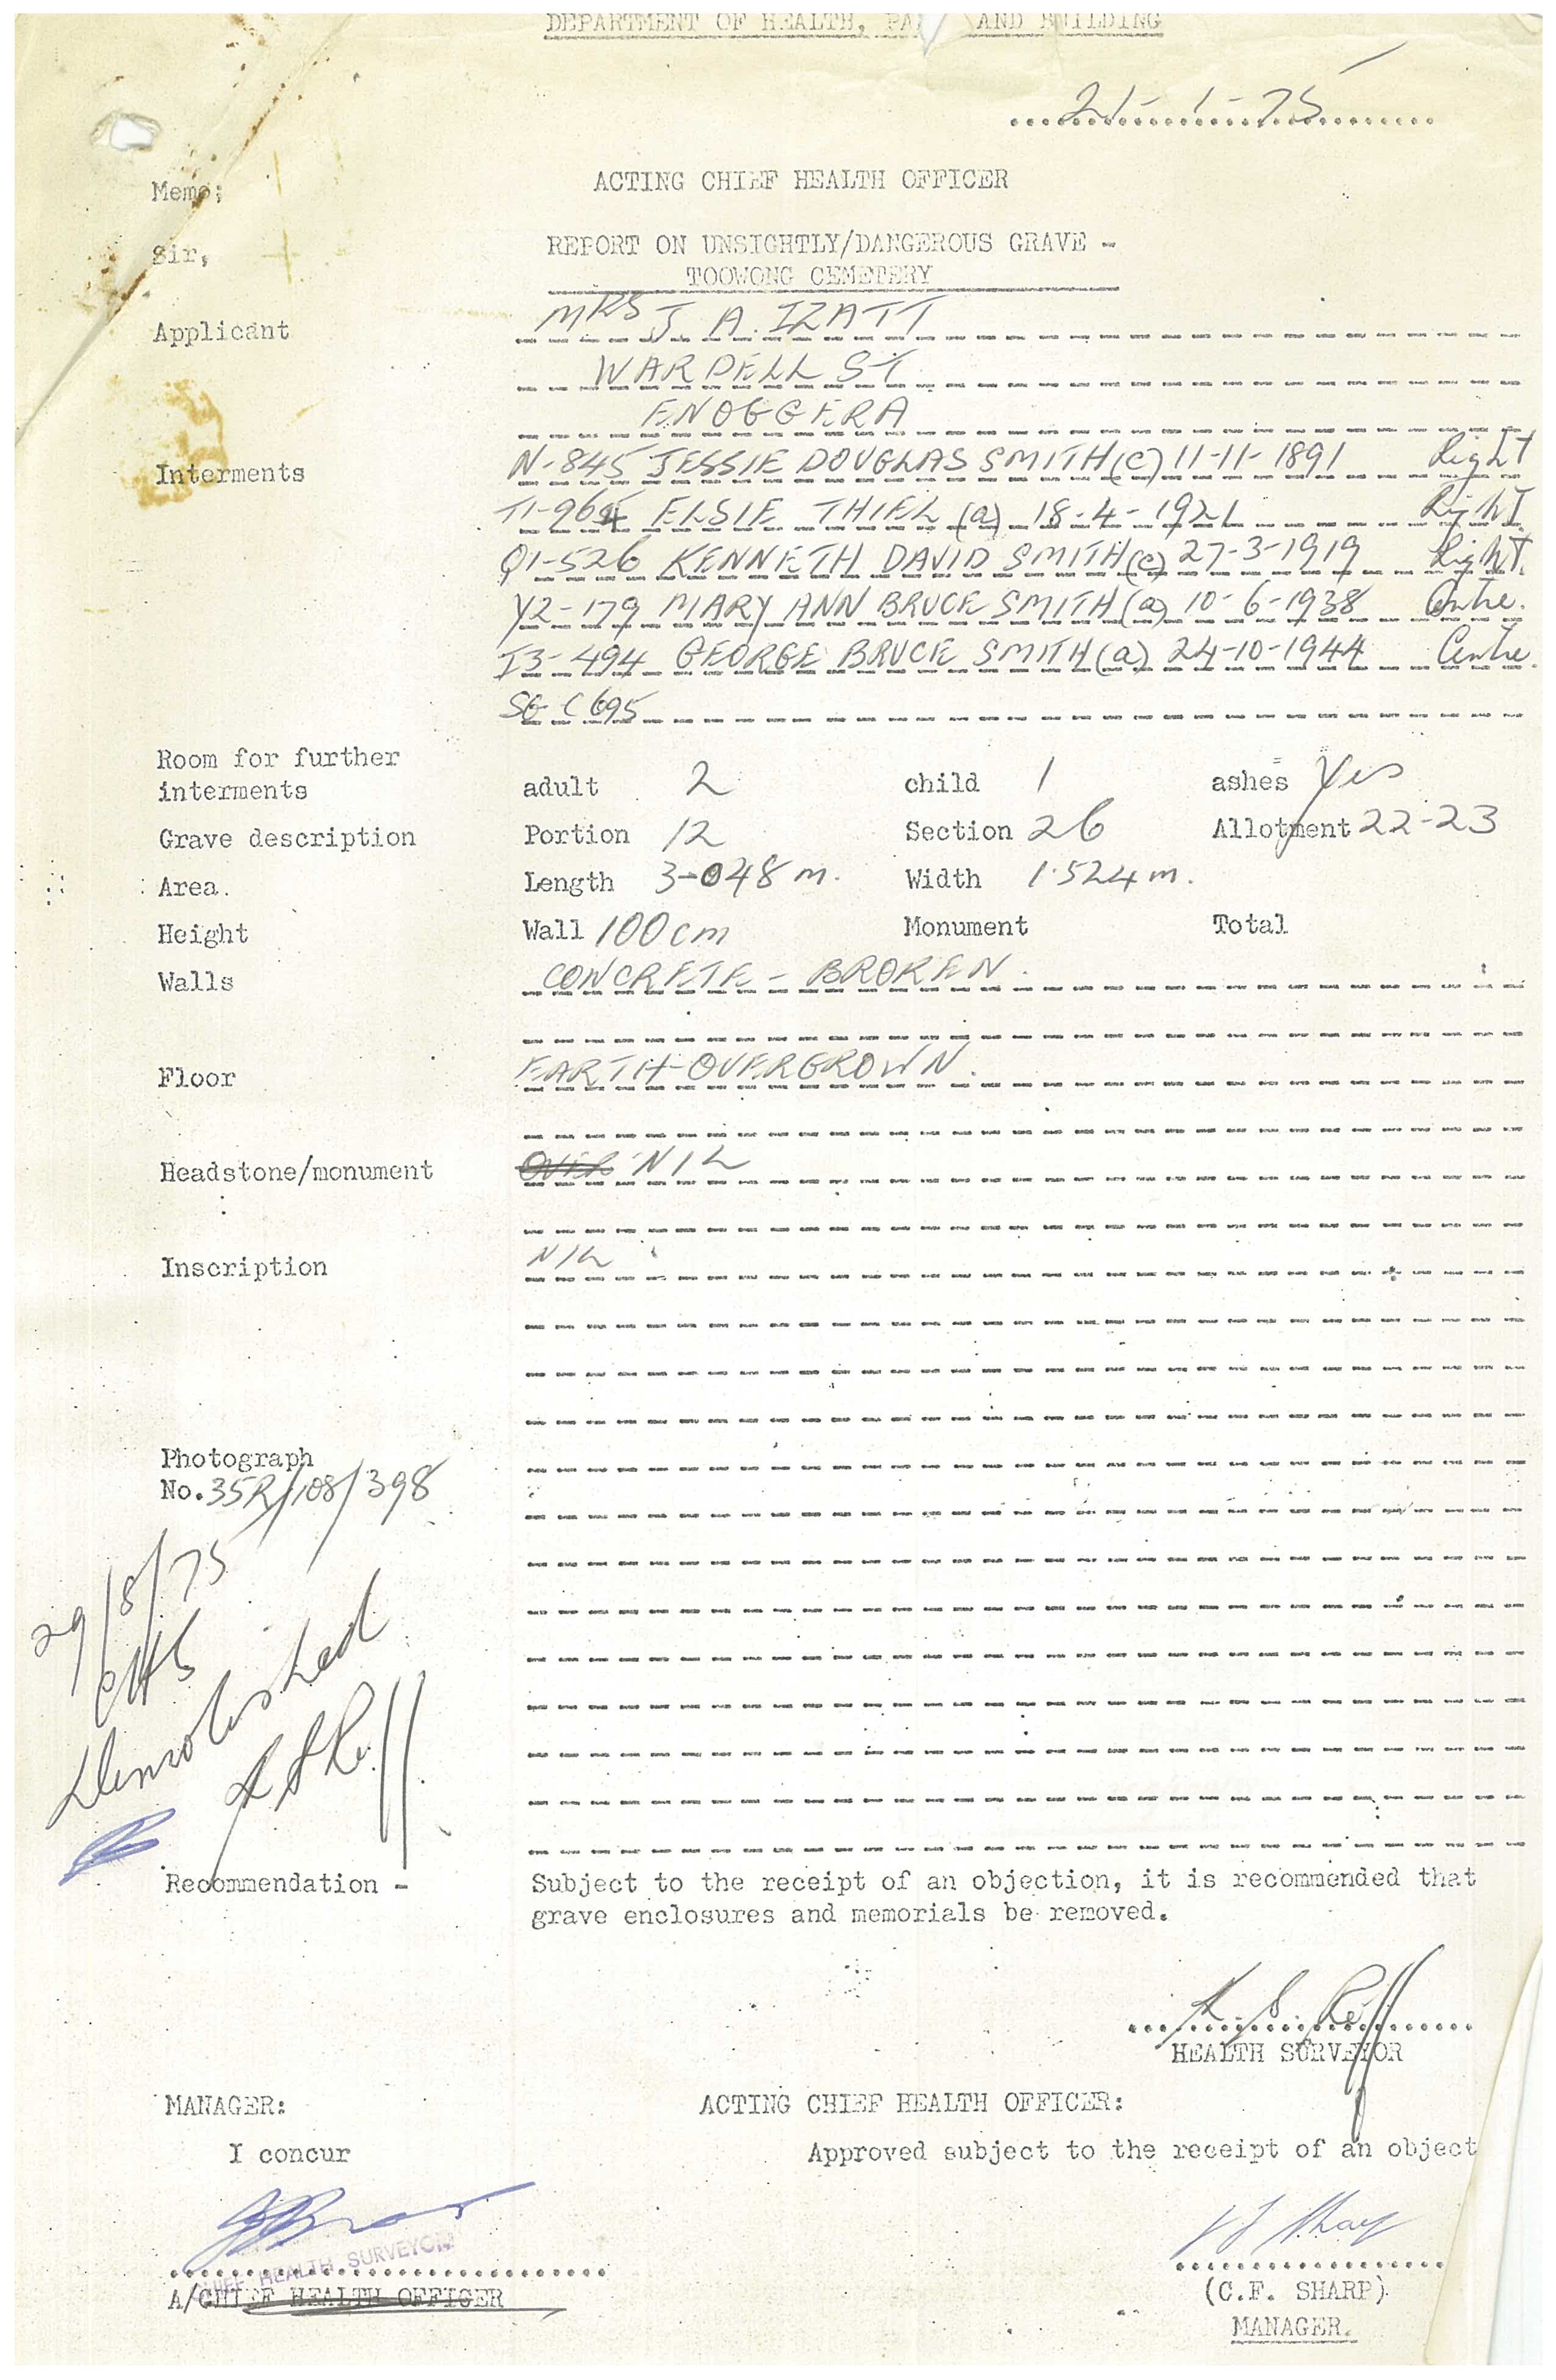 DEPARTMENT OF HEALTH, PA AND BUILDING
21-1-75
Memo:
ACTING CHIEF HEALTH OFFICER
Sir,
REPORT ON UNSIGHTLY/DANGEROUS GRAVE -
TOOWONG CEMETERY
Applicant MRS J. A. IZATT
WARDELL ST
ENOGGERA
Interments N-845 JESSIE DOUGLAS SMITH (c) 11-11-1891 Right
T1-964 ELSIE THIEL (a) 18-4-1921 Right
Q1-526 KENNETH DAVID SMITH (c) 27-3-1919 Right
Y2-179 MARY ANN BRUCE SMITH (a) 10-6-1938 Centre.
I3-494 GEORGE BRUCE SMITH (a) 24-10-1944 Centre.
SG C695
Room for further
interments adult 2 child 1 ashes Yes
Grave description Portion 12 Section 26 Allotment 22-23
Area. Length 3-048 m. Width 1.524 m.
Height Wall 100 cm Monument Total
Walls CONCRETE - BROKEN.
Floor EARTH-OVERGROWN.
Headstone/monument OVER NIL
Inscription NIL
Photograph
No. 35R/108/398
29/8/75
Demolished
Recommendation - Subject to the receipt of an objection, it is recommended that
grave enclosures and memorials be removed.
HEALTH SURVEYOR
MANAGER: ACTING CHIEF HEALTH OFFICER:
I concur Approved subject to the receipt of an object
CHIEF HEALTH SURVEYOR
A/CHIEF HEALTH OFFICER
(C.F. SHARP)
MANAGER.